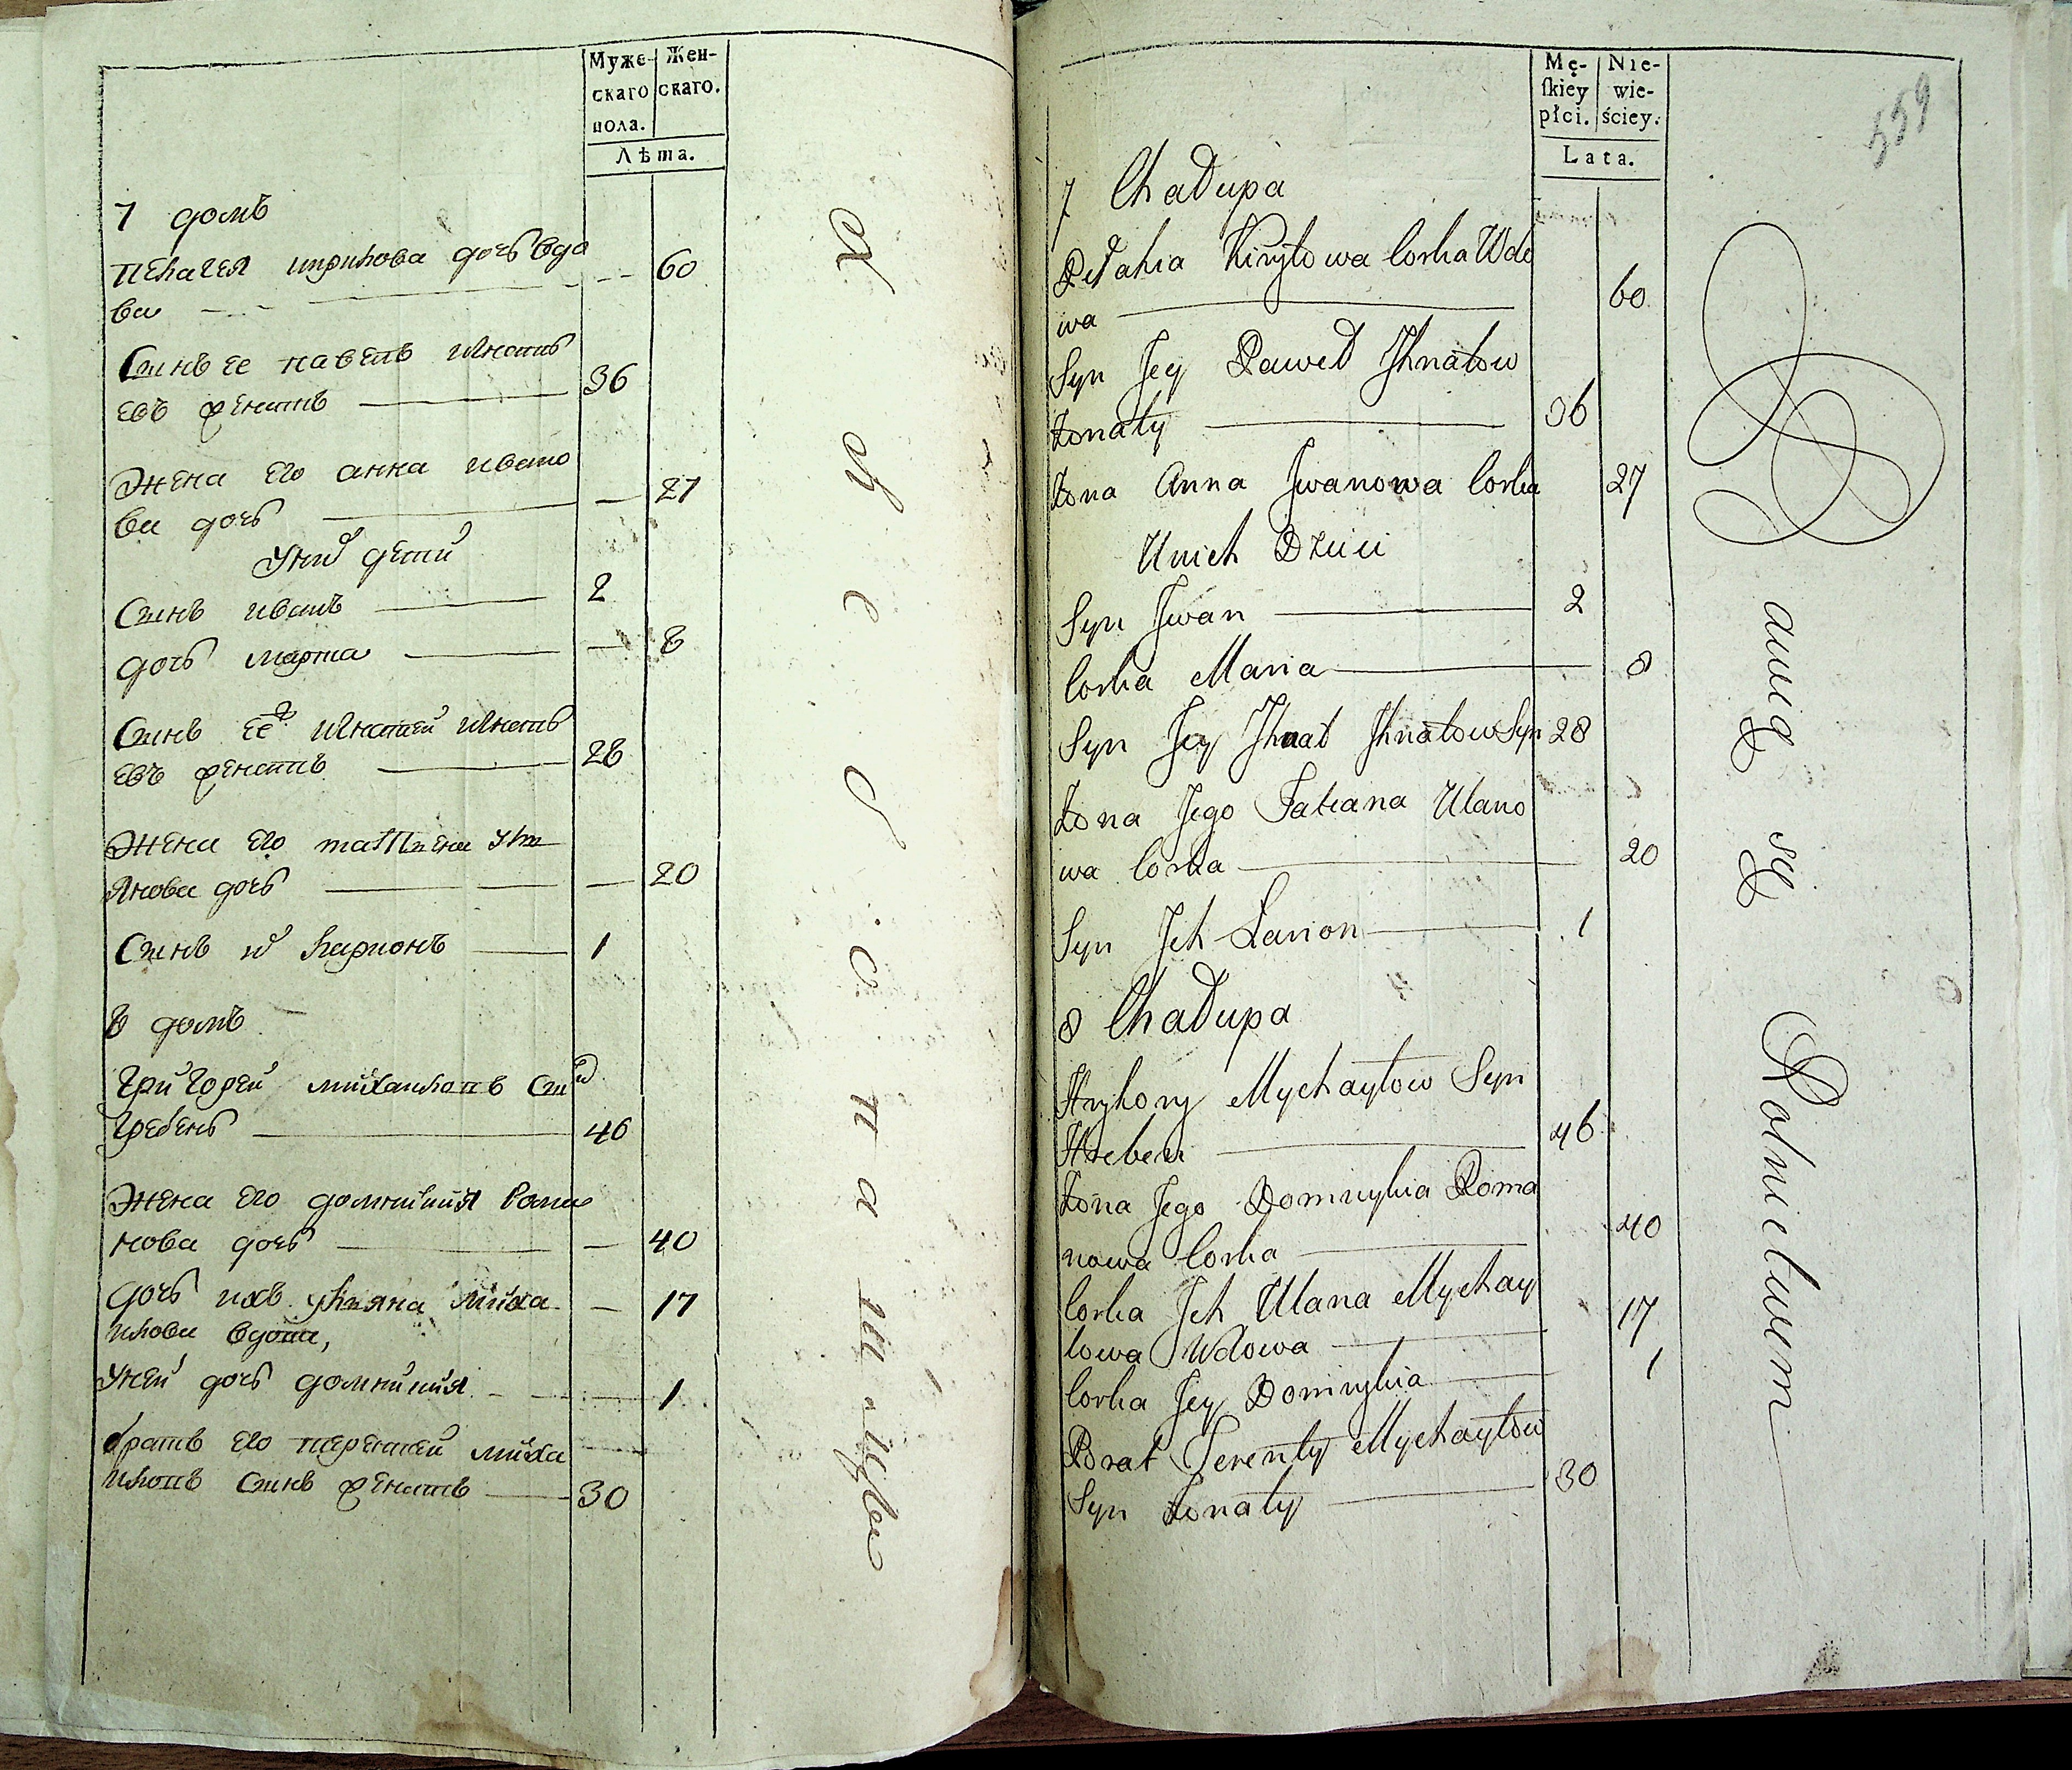 Муже-
скаго
пола.
Жен-
скаго.
Лѣта.
7 домъ
пелагея кирилова дочь вдо
ва 60
Синъ ее павелъ Игнать
евъ женатъ 36
Жена его анна ивано
ва дочь 27
у них дети
Синъ иванъ 2
дочь марта 8
Синъ ее 2й Игнатей Игнать
евъ женатъ 28
Жена его татияна уль
янова дочь 20
Синъ их ларионъ 1
8 домъ
Григорей михайловъ син
гребень 46
Жена его домникия рома
нова дочь 40
дочь ихъ уляна миха 17
илова вдова,
у ней дочь домникия 1
братъ его терентей миха
иловъ синъ женатъ 30
Mę-
ſkiey
płci.
Nie-
wie-
ściey.
Lata.
559
7 Chałupa
Pełahia Kiryłowa Corka Wdo
wa 60
Syn Jey Paweł Ihnatow
żonaty 36
żona Anna Jwanowa Corka 27
U nich Dzieci
Syn Jwan 2
Corka Maria 8
Syn Jey Ihnat Ihnatow Syn 28
żona Jego Tatiana Ulano
wa Corka 20
Syn Jch Larion 1
8 Chałupa
Hryhory Mychayłow Syn
Hreben 46
żona Jego Domnykia Roma
nowa Corka 40
Corka Jch Ulana Mychay
łowa Wdowa 17
Corka Jey Domnykia 1
Brat Terenty Mychayłow
Syn żonaty 30